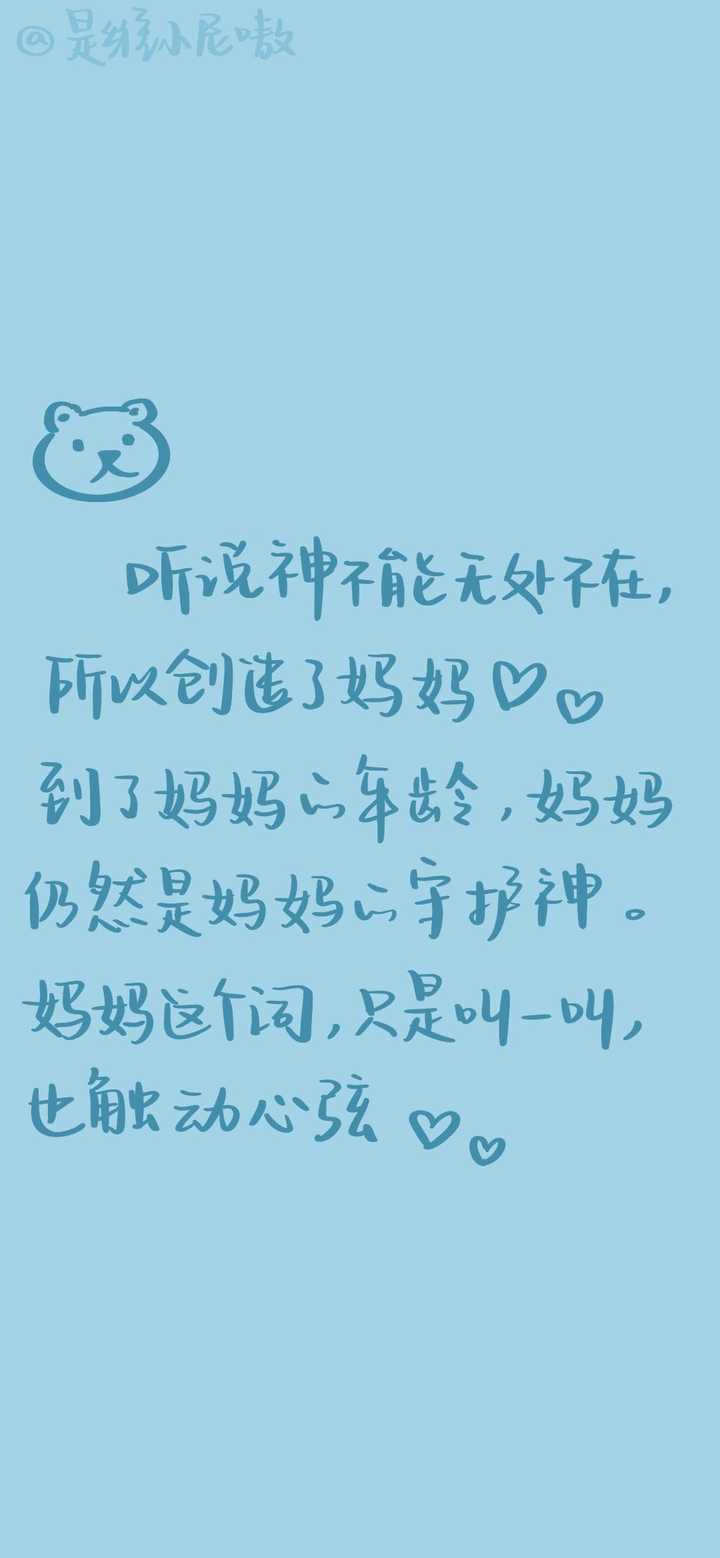 @是维小尼嗷
听说神不能无处不在，
所以创造了妈妈♡♡
到了妈妈的年龄，妈妈
仍然是妈妈的守护神。
妈妈这个词，只是叫一叫，
也触动心弦♡♡